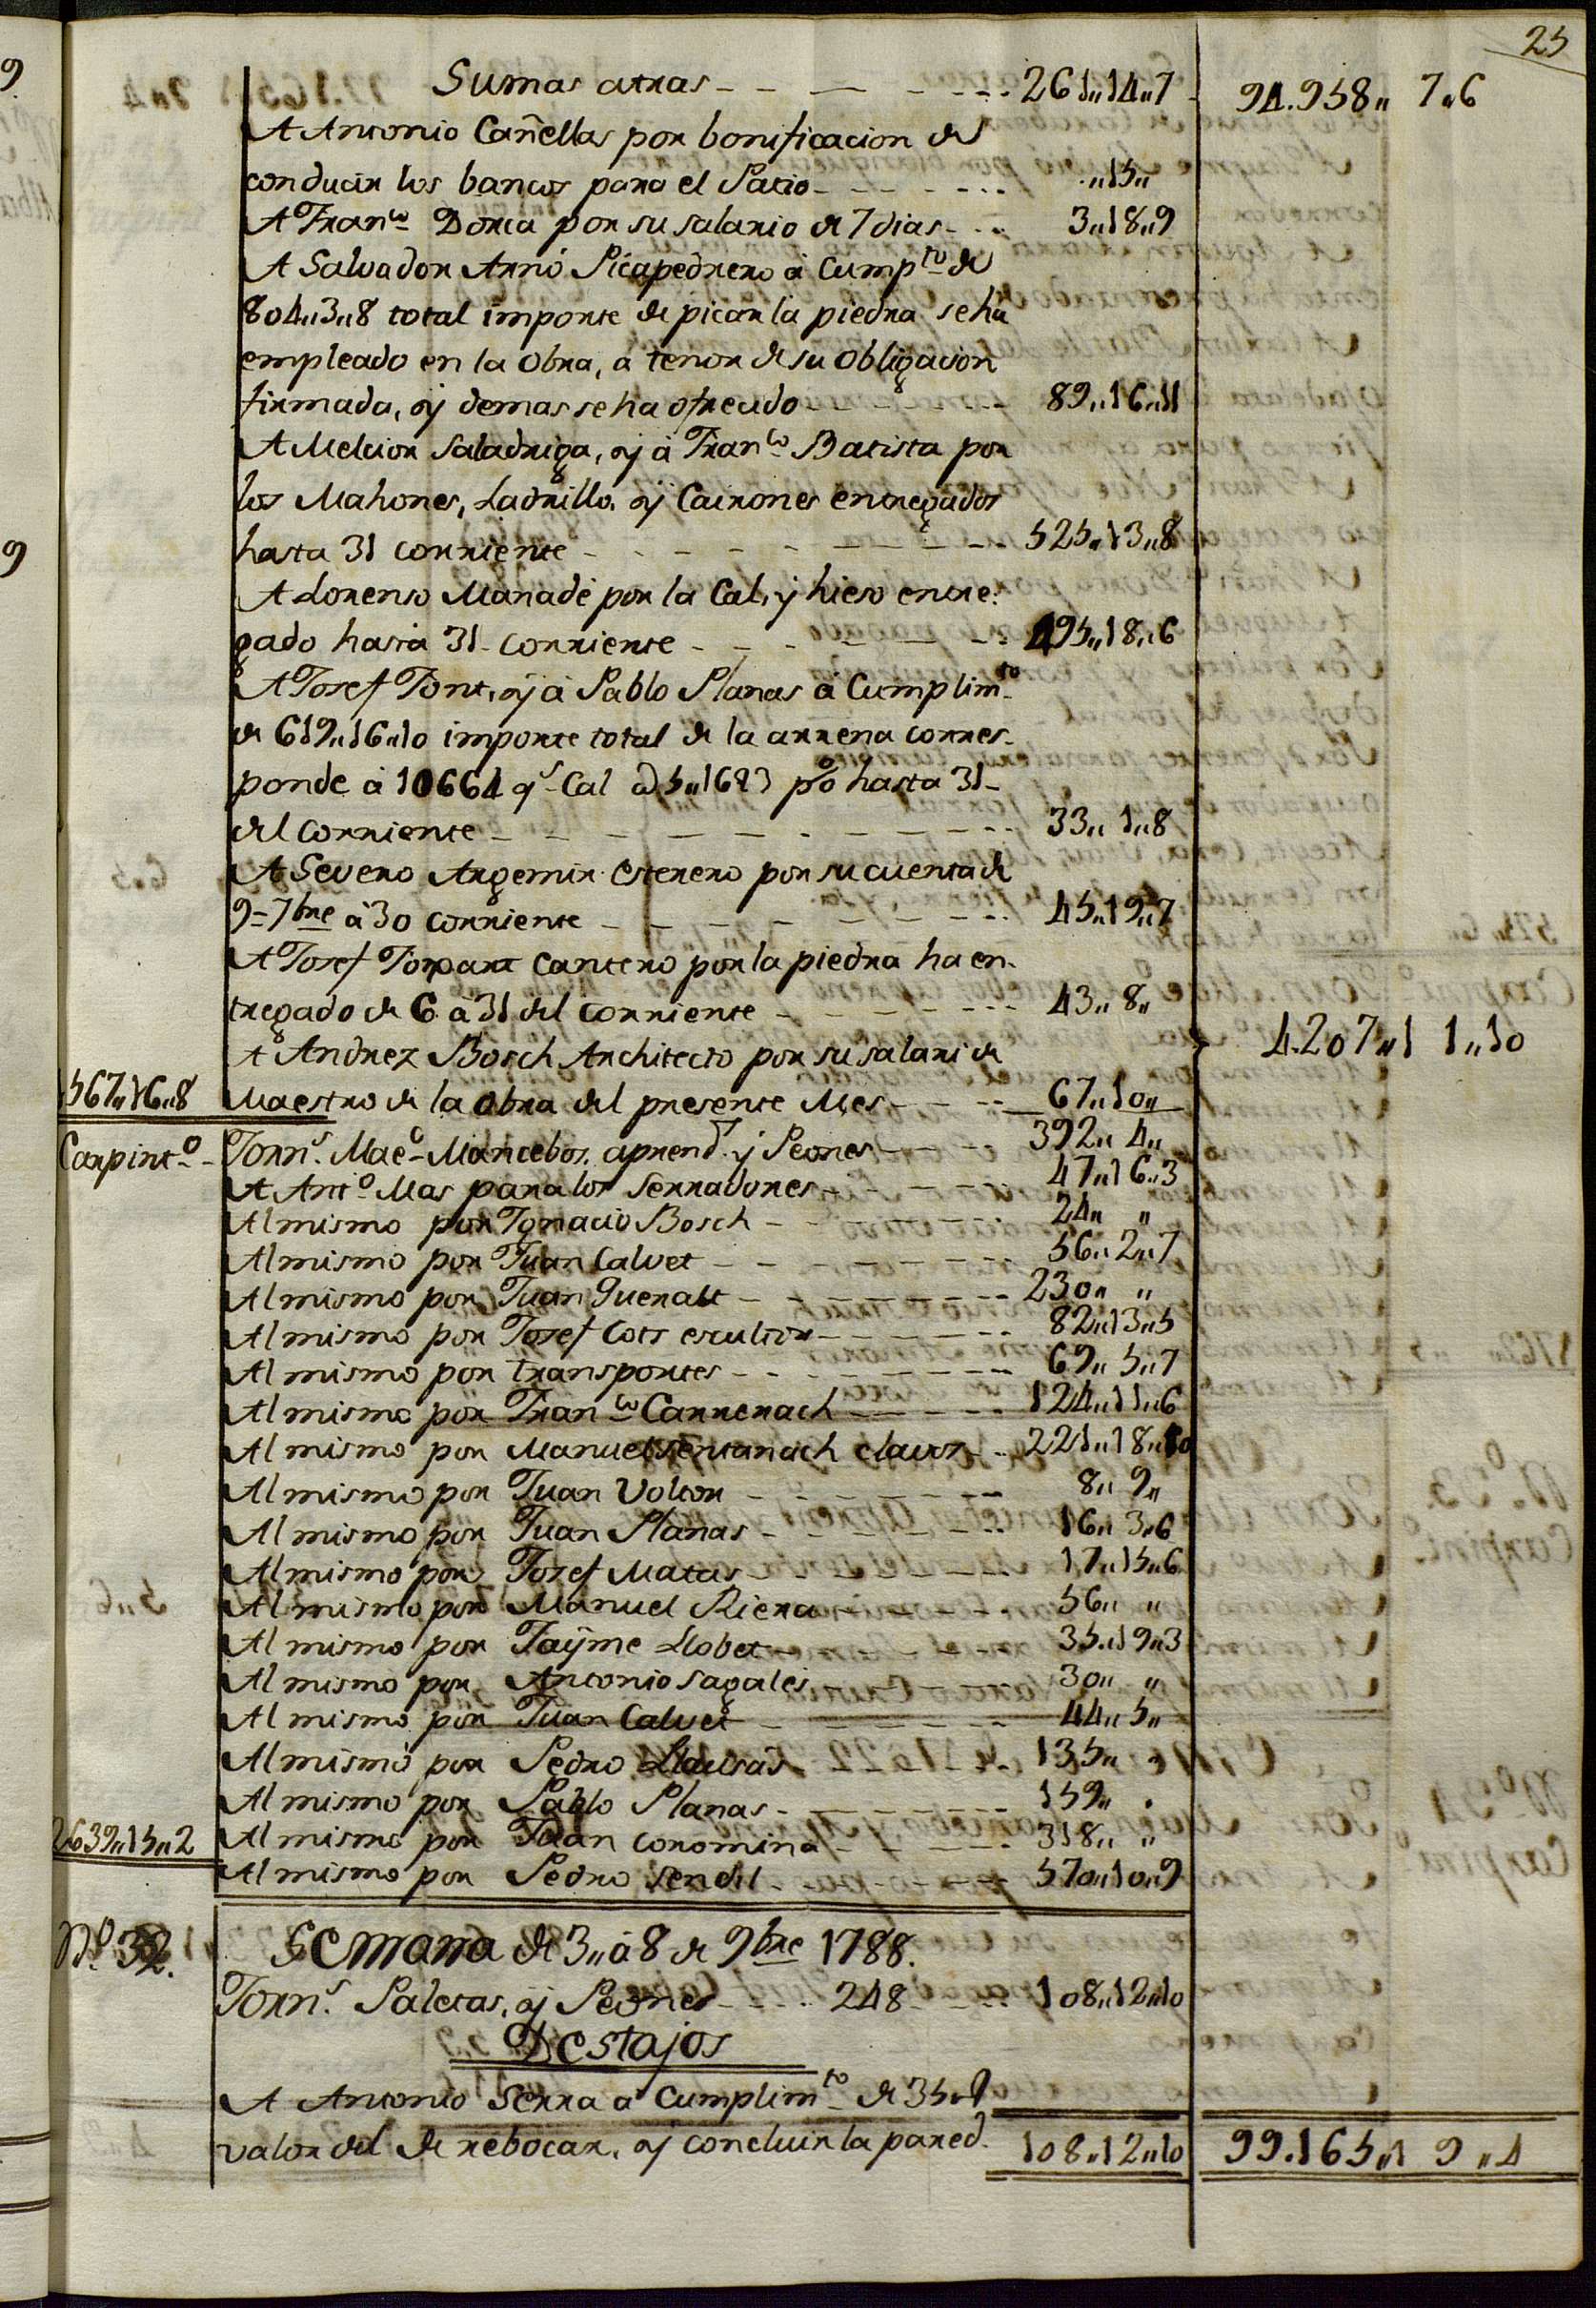 25
Sumas atras - - - - - 261,,14,,7 94.958,, 7,,6
A Antonio Cañellas por bonificacion de
conducir los bancos para el Patio - - - - ,,15,,
A Franco Dorca por su salario de 7 dias - - 3,,18,,9
A Salvador Arnó Picapedrero à Cumpto de
804,,3,,8 total importe de picar la piedra se hà
empleado en la Obra, a tenor de su Obligacion
firmada, y demas se ha ofrecido - - - - 89,,16,,11
A Melcior Saladriga, y à Franco Batista por
los Mahones, Ladrillo, y Cairones entregados
hasta 31 corriente - - - - - 525,,13,,8
A Lorenso Mañadé por la Cal, y hieso entre-
gado hasta 31 corriente - - - - 495,,18,,6
A Josef Font, y à Pablo Planas à Cumplimto
de 619,,16,,10 importe total de la arrena corres-
ponde à 10664 qs Cal hasta 31
del corriente - - - - - 33,, 1,,8
A Severo Argemir Esterero por su cuenta de
9 = 7bre à 30 corriente - - - - 45,,19,,7
A Josef Torpart Cantero por la piedra ha en-
tregado de 6 à 31 del corriente - - - - 43,,8,,
4.207,,11,,10
A Andrez Bosch Architecto por su salari de
1567,,16,,8 Maestro de la obra del presente Mes - - - 67,,10,,
Carpinto - Jorns. Maeo Mancebos, aprends. y Peones - - - 392,, 4,,
A Anto Mas para los Serradores - - - - 47,,16,,3
Al mismo por Ignacio Bosch - - - - 24,, ,,
Al mismo por Juan Calvet - - - - 56,, 2,,7
Al mismo por Juan Gueralt - - - - 230,, ,,
Al mismo por Josef Cots escultor - - - - 82,,13,,5
Al mismo por transportes - - - - 69,, 5,,7
Al mismo por Franco Carrerach - - - - 124,,11,,6
Al mismo por Manuel Sentanach clavos - - 221,,18,,10
Al mismo por Juan Volton - - - - 8,, 9,,
Al mismo por Juan Planas - - - - 16,, 3,,6
Al mismo por Josef Matas - - - - 17,,15,,6
Al mismo por Manuel Riera - - - - 56,, ,,
Al mismo por Jayme Llobet - - - - 35,,19,,3
Al mismo por Antonio Sagalés - - - - 30,, ,,
Al mismo por Juan Calvet - - - - 44,, 5,,
Al mismo por Pedro - - 135,, ,,
Al mismo por Pablo Planas - - - - 159,, ,,
2639,,15,,2 Al mismo por Juan Coromina - - - - 318,, ,,
Al mismo por Pedro Sendil - - - - 570,,10,,9
No. 32. Semana de 3,, à 8 de 9bre 1788.
Jorns. Paletas, y Peones - - - 248 - - - 108,,12,,10
Destajos
A Antonio Serra a Cumplimto de 35,,9
valor del de rebocar, y concluir la pared. 108,,12,,10 99.165,,19,,4